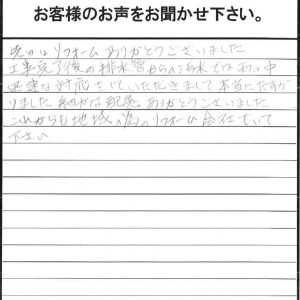 お客様のお声をお聞かせ下さい。
先日はリフォームありがとうございました
工事完了後の排水管からの漏水では
迅速な対応をしていただきまして本当にたすか
りました 細かな配慮ありがとうございました
これからも地域の為のリフォーム会社でいて
下さい